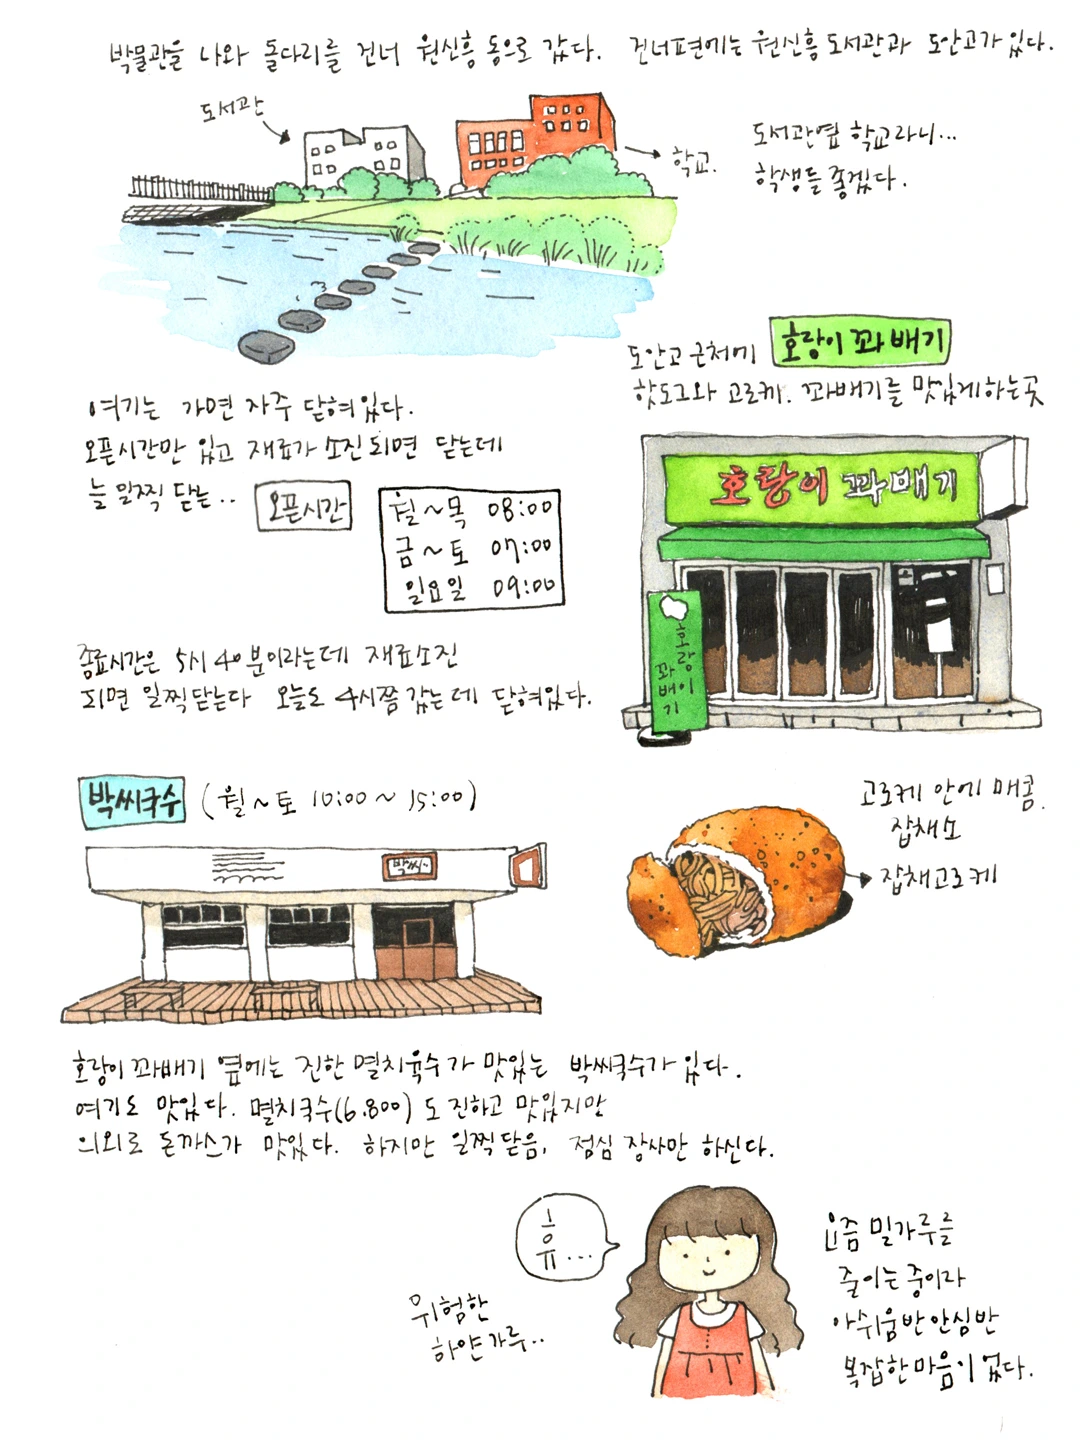 박물관을 나와 돌다리를 건너 원신흥 동으로 갔다. 건너편에는 원신흥 도서관과 도안고가 있다.
도서관
학교.
도서관옆 학교라니...
학생들 좋겠다.
도안고 근처에 호랑이 꽈배기
핫도그와 고로케. 꽈배기를 맛있게하는곳
여기는 가면 자주 닫혀있다.
오픈시간만 있고 재료가 소진되면 닫는데
늘 일찍 닫는..
오픈시간
월~목 08:00
금~토 07:00
일요일 09:00
호랑이 꽈배기
호랑이
꽈배기
종료시간은 5시 40분이라는데 재료소진
되면 일찍닫는다 오늘도 4시쯤 갔는데 닫혀있다.
박씨국수 (월~토 10:00~15:00)
박씨..
고로케 안에 매콤.
잡채소
잡채고로케
호랑이 꽈배기 옆에는 진한 멸치육수가 맛있는 박씨국수가 있다.
여기도 맛있다. 멸치국수(6.800)도 진하고 맛있지만
의외로 돈까스가 맛있다. 하지만 일찍닫음, 점심 장사만 하신다.
휴...
위험한
하얀가루..
요즘 밀가루를
줄이는 중이라
아쉬움반 안심반
복잡한마음이 없다.